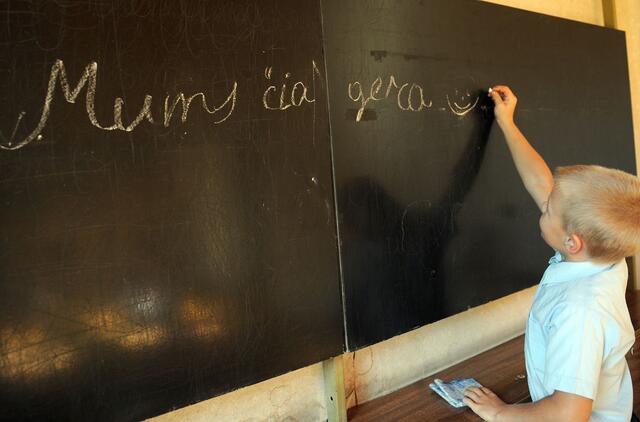 Mums čia gera